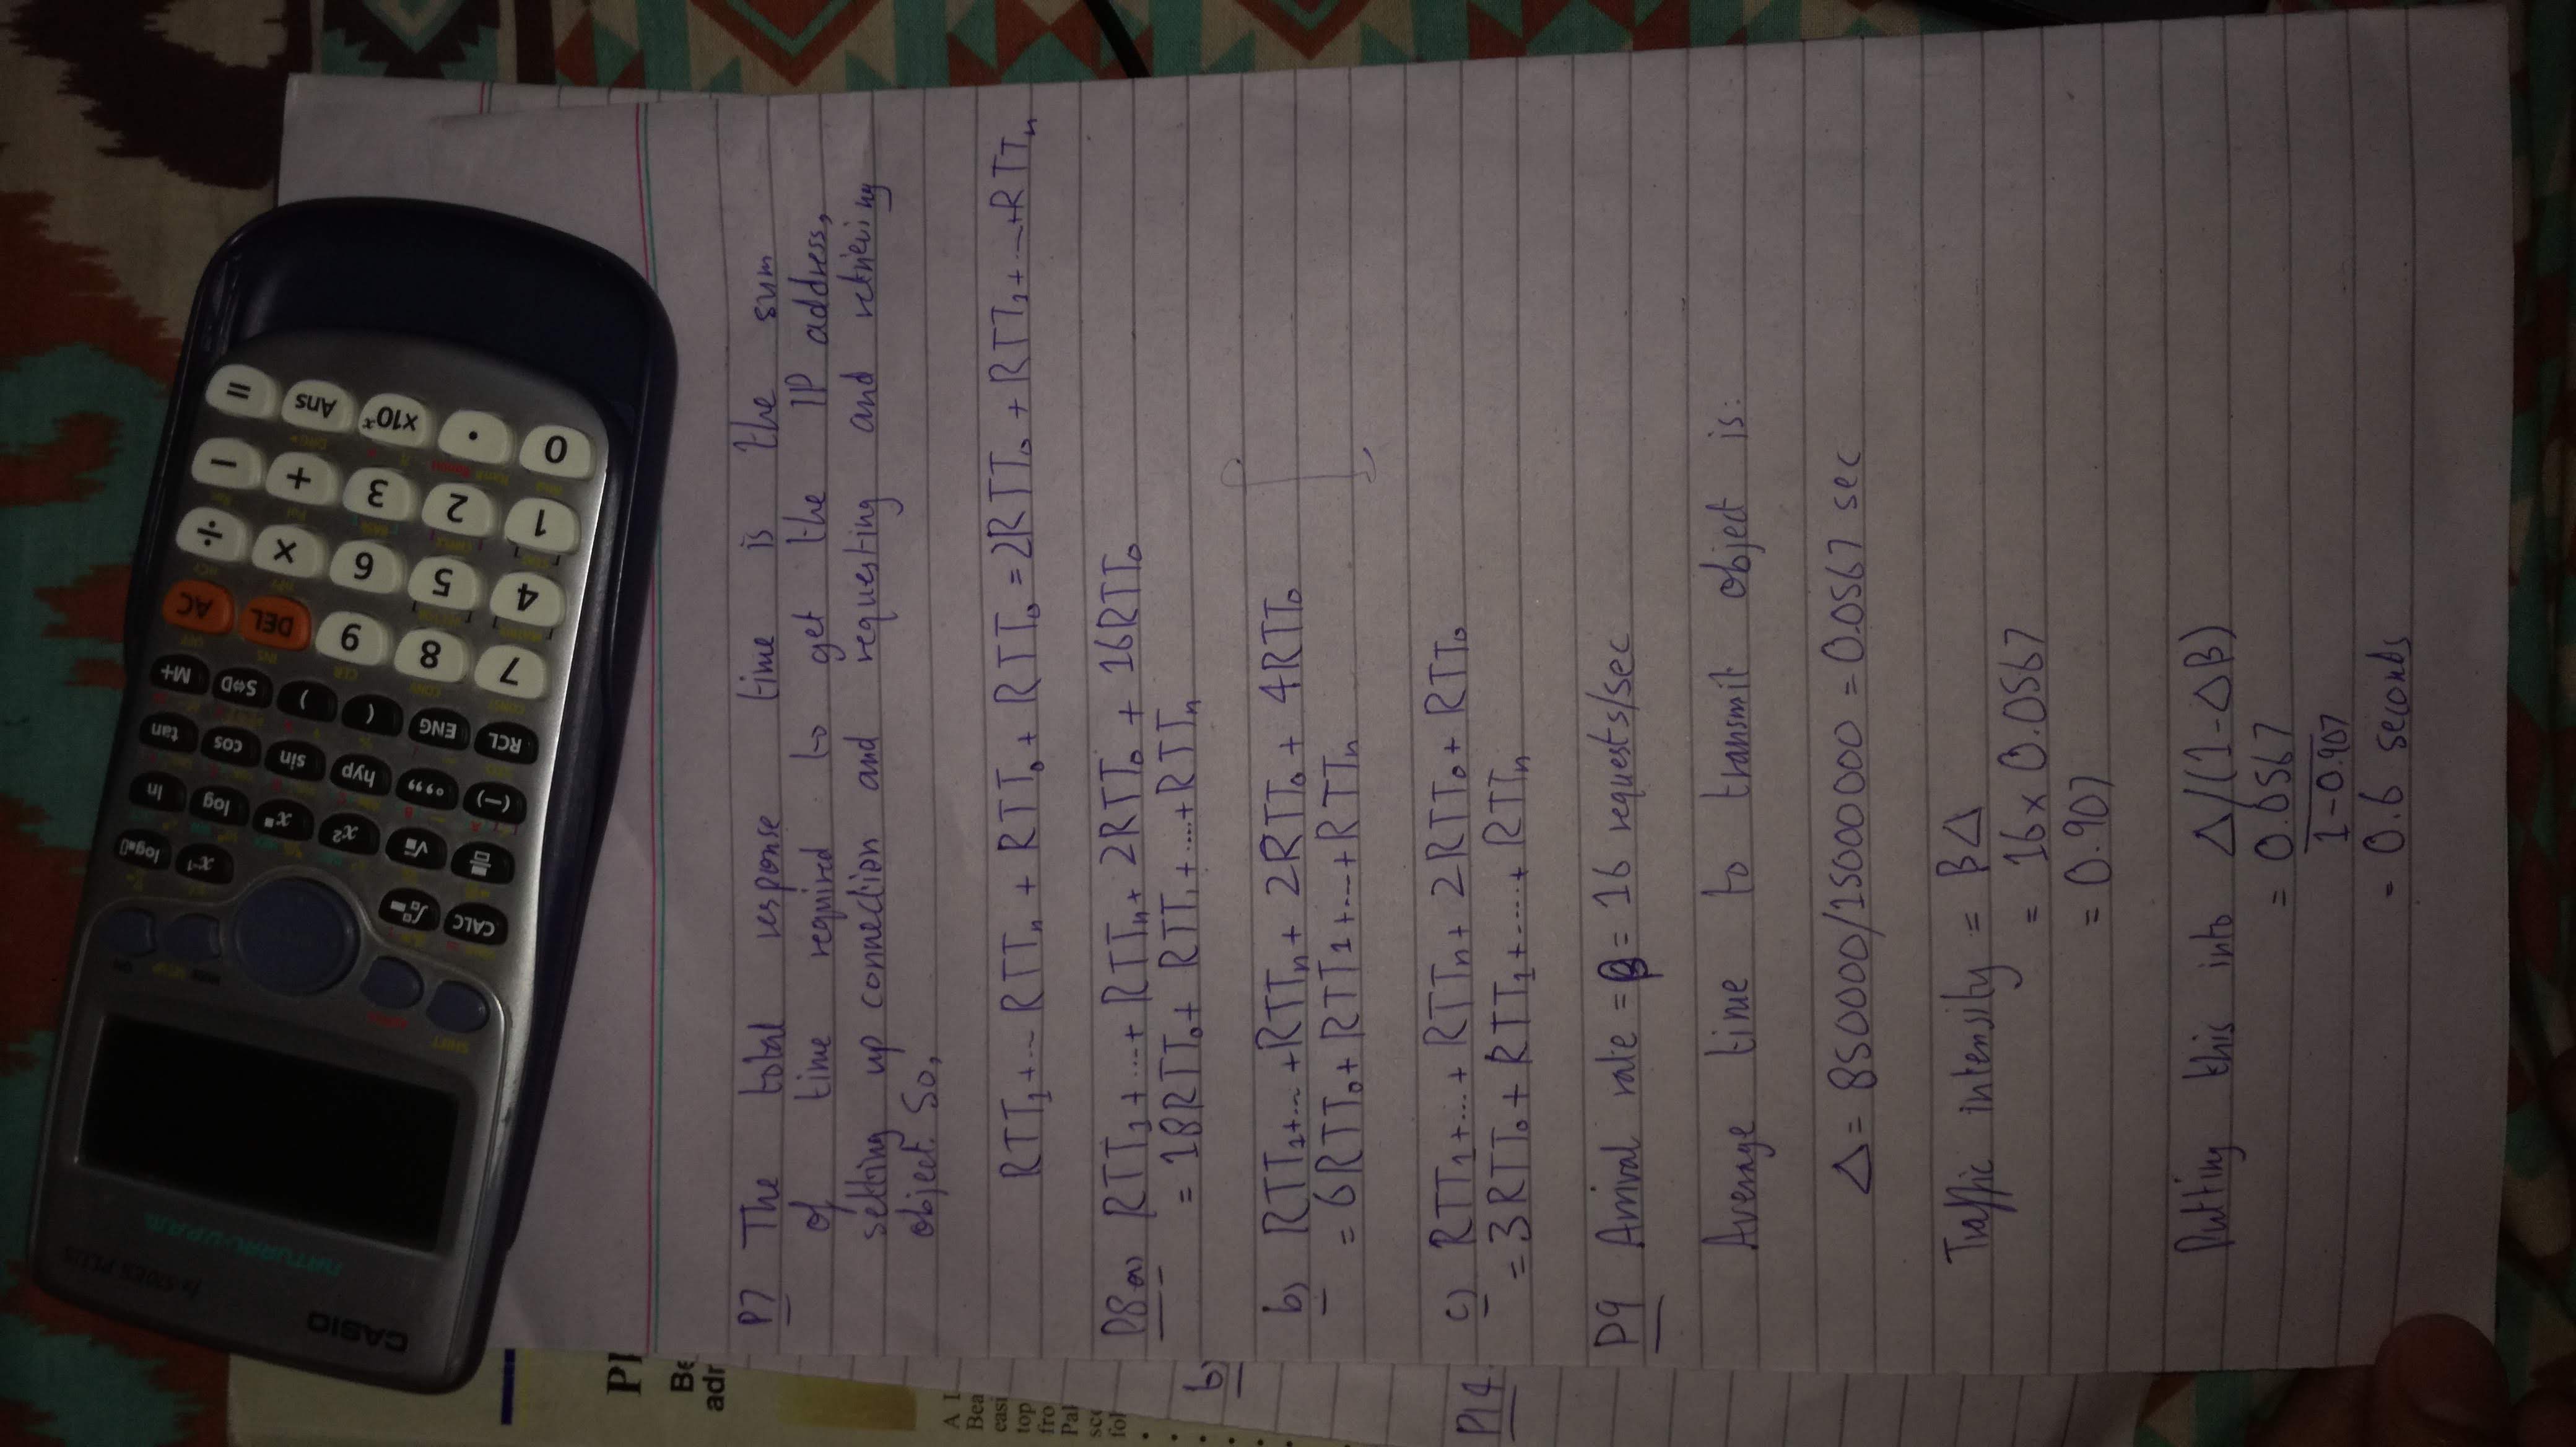 CASIO
NATURAL-V.P.A.M.
SHIFT
ON
CALC ∫ x⁻¹ log
√ x² x■ log ln
(−) °,,, hyp sin cos tan
RCL ENG ( ) S⇔D M+
7 8 9 DEL AC
4 5 6 × ÷
1 2 3 + −
0 . ×10ˣ Ans =
Be
adr
A L
Bea
easi
top
fro
Pal
fol
b)
P14
P7 The total response time is the sum
of time required to get the IP address,
setting up connection and requesting and retrieving
object. So,
RTT₁ +... RTTₙ + RTT₀ + RTT₀ = 2RTT₀ + RTT₁ +...+RTTₙ
P8 a) RTT₁ +...+ RTTₙ + 2RTT₀ + 16RTT₀
= 18RTT₀ + RTT₁ +....+ RTTₙ
b) RTT₁+... +RTTₙ + 2RTT₀ + 4RTT₀
= 6RTT₀ + RTT1 +....+ RTTₙ
c) RTT₁ +...+ RTTₙ + 2RTT₀ + RTT₀
= 3RTT₀ + RTT₁ +.....+ RTTₙ
P9 Arrival rate = β = 16 requests/sec
Average time to transmit object is:
Δ = 850000/15000000 = 0.0567 sec
Traffic intensity = βΔ
= 16 x 0.0567
= 0.907
Putting this into Δ/(1-Δβ)
= 0.0567
1-0.907
= 0.6 seconds